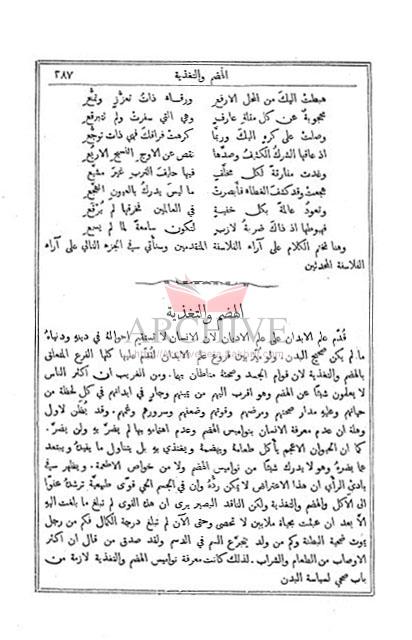 الهضم والتغذية ٢٨٧
هبطت اليك من المحل الارفع ورقاء ذات تعزز وتمنع
محجوبة عن كل مقلة عارف وهي التي سفرت ولم تتبرقع
وصلت على كره اليك وربما كرهت فراقك فهي ذات توجع
اذ عاقها الشرك الكثيف وصدها نقص عن الاوج الفسيح الاربع
وغدت مفارقة لكل مخلف فيها حليف الترب غير مشيع
هجعت وقد كشف الغطاء فأبصرت ما ليس يدرك بالعيون الهجع
وتعود عالمة بكل خفية في العالمين فخرقها لم يرقع
فهبوطها اذ ذاك ضربة لازب لتكون سامعة لما لم يسمع
وهنا نختم الكلام على آراء الفلاسفة المتقدمين وسنأتي في الجزء التالي على آراء
الفلاسفة المحدثين
الهضم والتغذية
ARCHIVE
قُدّم علم الابدان على علم الاديان لان الانسان لا تستقيم احوالهُ في دينهِ ودنياهُ
ما لم يكن صحيح البدن ولو فروع علم الابدان لتقدم عليها كلها الفرع المتعلق
بالهضم والتغذية لان قوام الجسد وصحتهُ مناطان بهما. ومن الغريب ان اكثر الناس
لا يعلمون شيئًا عن الهضم وهو اقرب اليهم من وجارٍ في ابدانهم في كل لحظة من
حياتهم وعليهِ مدار صحتهم ومرضهم وقوتهم وضعفهم وسرورهم وغمهم. وقد يُظَن لاول
وهلة ان عدم معرفة الانسان بنواميس الهضم وعدم اهتمامهِ بها لم يضرَّ بهِ ولن يضرَّ.
كما ان الحيوان الاعجم يأكل طعامهُ ويهضمهُ ويغتذي بهِ بل يتناول ما يفيدهُ ويبتعد
عما يضرهُ وهو لا يدرك شيئًا من نواميس الهضم ولا من خواص الاطعمة. ويظهر في
بادئ الرأي ان هذا الاعتراض لا يمكن ردُّهُ وان في الجسم الحي قوًى طبيعية ترشدهُ
الى الاكل والهضم والتغذية ولكن الناقد البصير يرى ان هذه القوى لم تبلغ ما بلغت اليهِ
الَّا بعد ان عبثت بحياة ملايين لا تحصى وحتى الآن لم تبلغ درجة الكمال فكم من رجل
يموت ضحية البطنة وكم من ولد يتجرَّع السم في الدسم ولقد صدق من قال ان اكثر
الاوصاب من الطعام والشراب. لذلك كانت معرفة نواميس الهضم والتغذية لازمة من
باب صحي لسياسة البدن